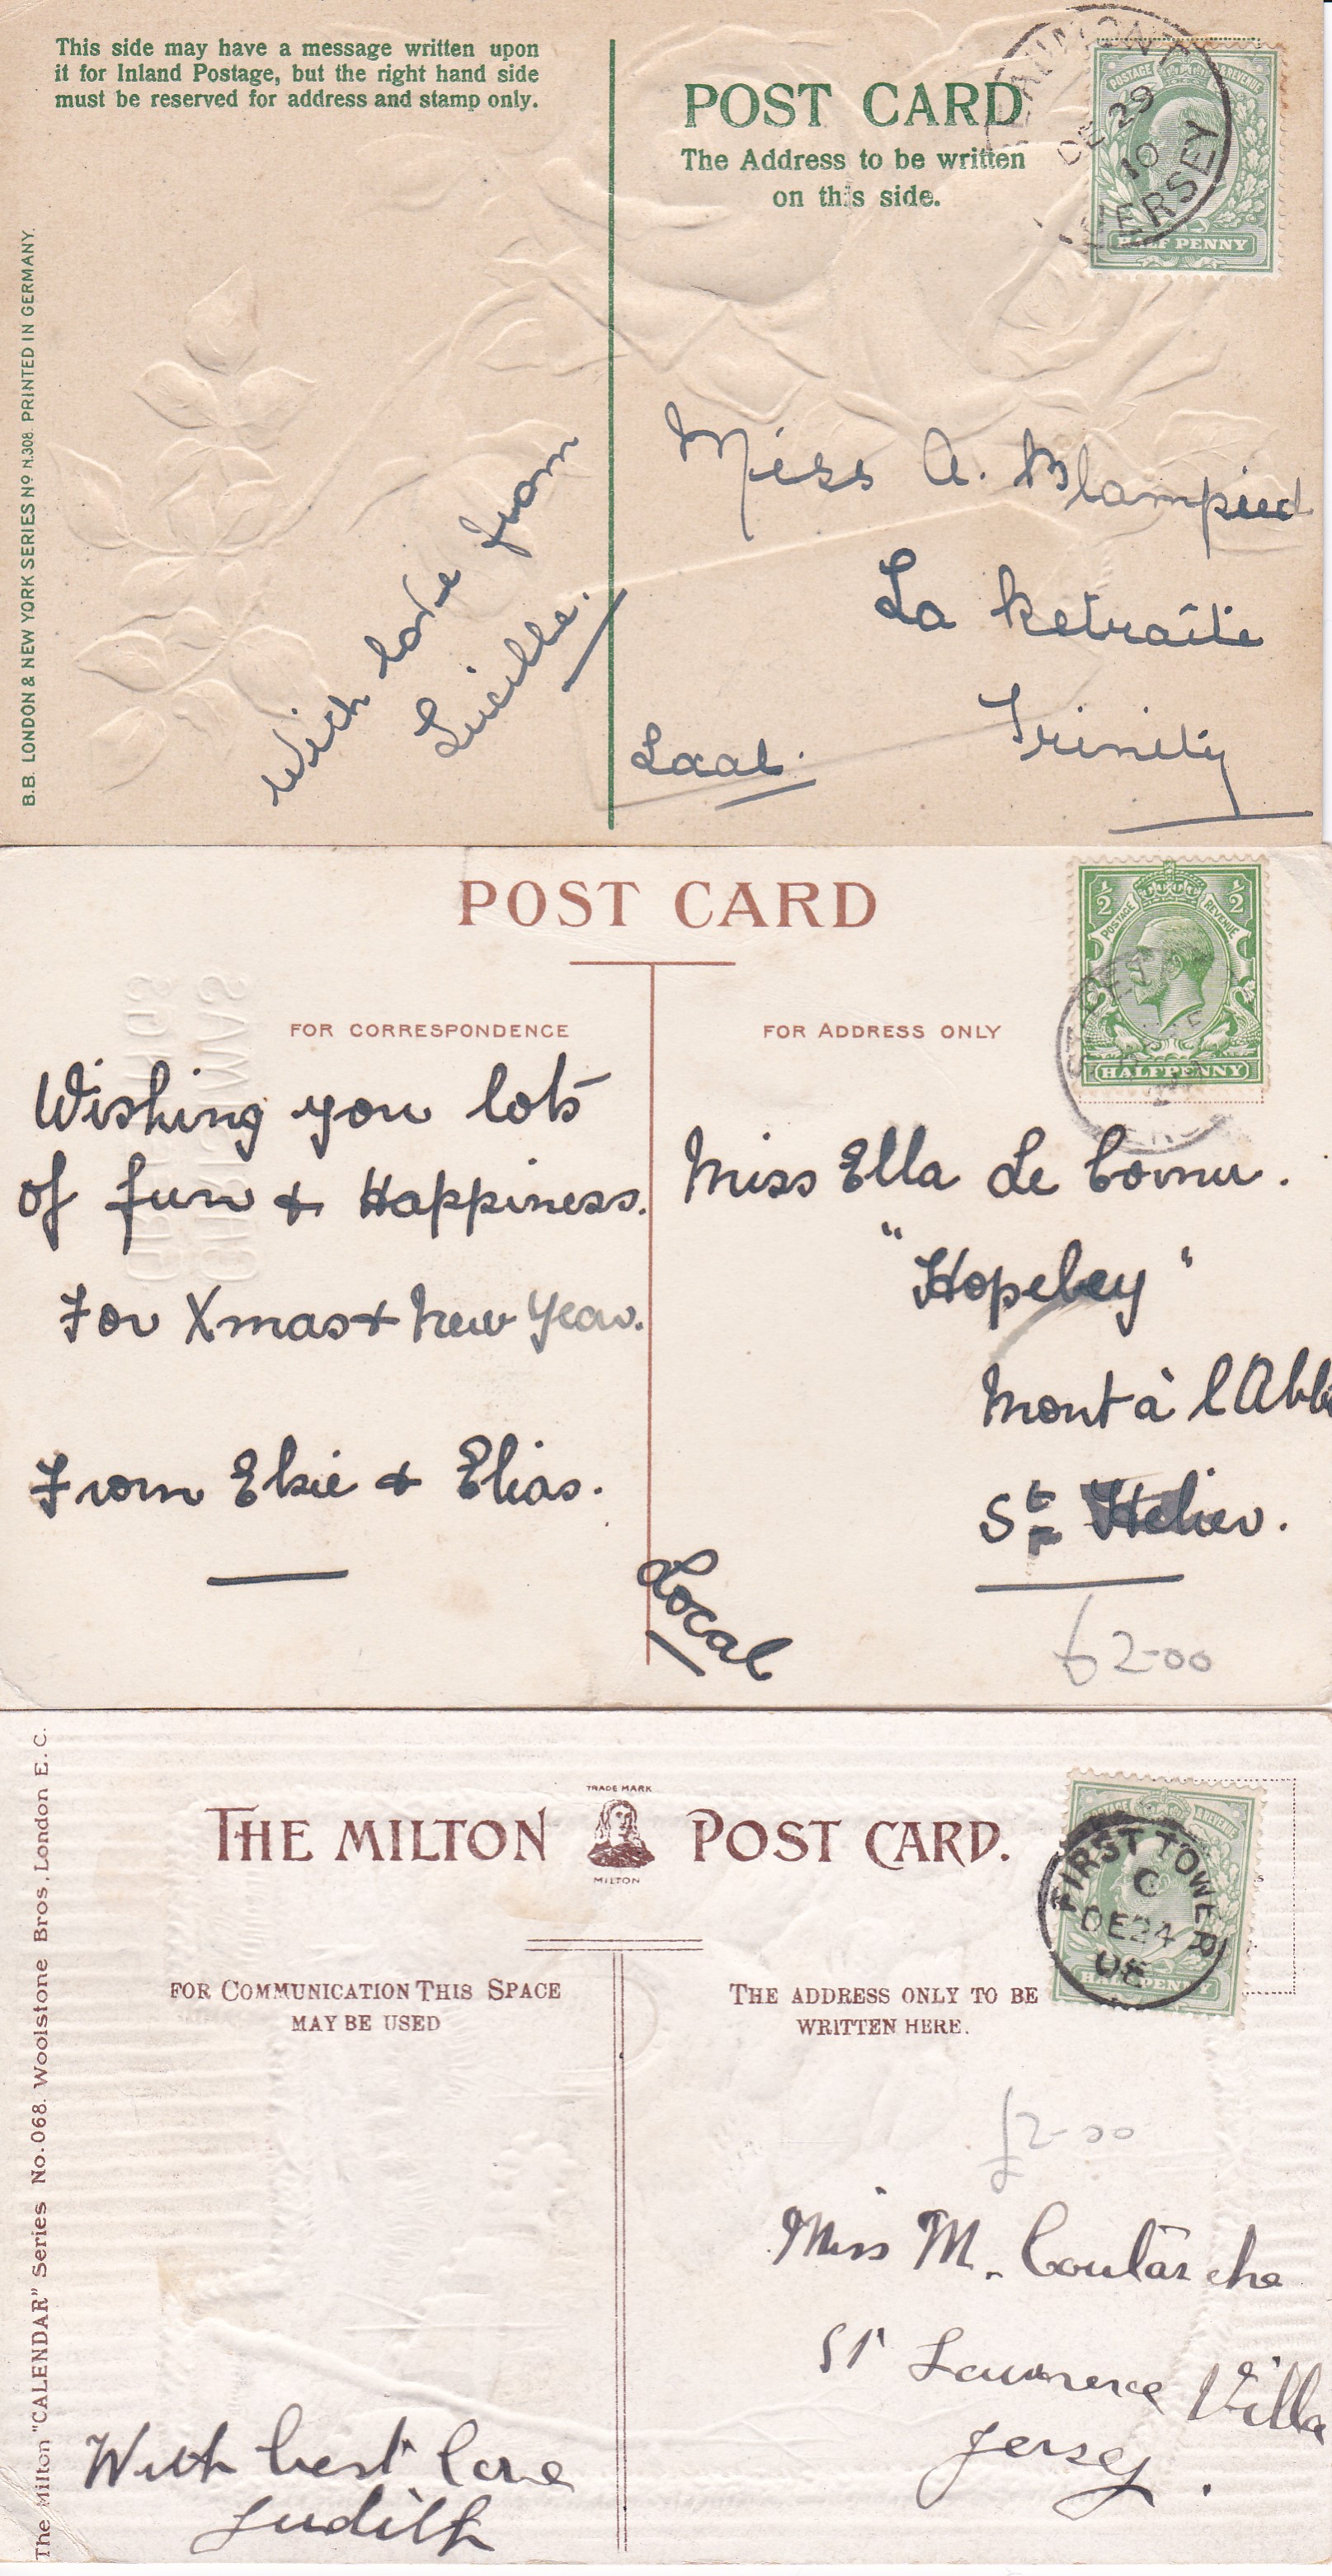 This side may have a message written upon
it for Inland Postage, but the right hand side
must be reserved for address and stamp only.
POST CARD
The Address to be written
on this side.
POSTAGE REVENUE
HALF PENNY
DE 29
10
JERSEY
B.B. LONDON & NEW YORK SERIES No N.308. PRINTED IN GERMANY.
With love from
Lucille.
Miss A. Blampied
La Retraite
Trinity
Local.
POST CARD
FOR CORRESPONDENCE
FOR ADDRESS ONLY
½ ½
POSTAGE REVENUE
HALFPENNY
Wishing you lots
of fun & Happiness.
For Xmas & New Year.
From Elsie & Elias.
Miss Ella Le Cornu.
"Hopeley"
Mont à l'Abb
St Helier.
Local
£2-00
The Milton "CALENDAR" Series No. 068. Woolstone Bros, London E.C.
THE MILTON POST CARD.
TRADE MARK
MILTON
FOR COMMUNICATION THIS SPACE
MAY BE USED
THE ADDRESS ONLY TO BE
WRITTEN HERE.
FIRST TOWER
C
DE 24
08
HALFPENNY
£2-00
With best love
Judith
Miss M. Coutanche
St Lawrence Villa
Jersey.